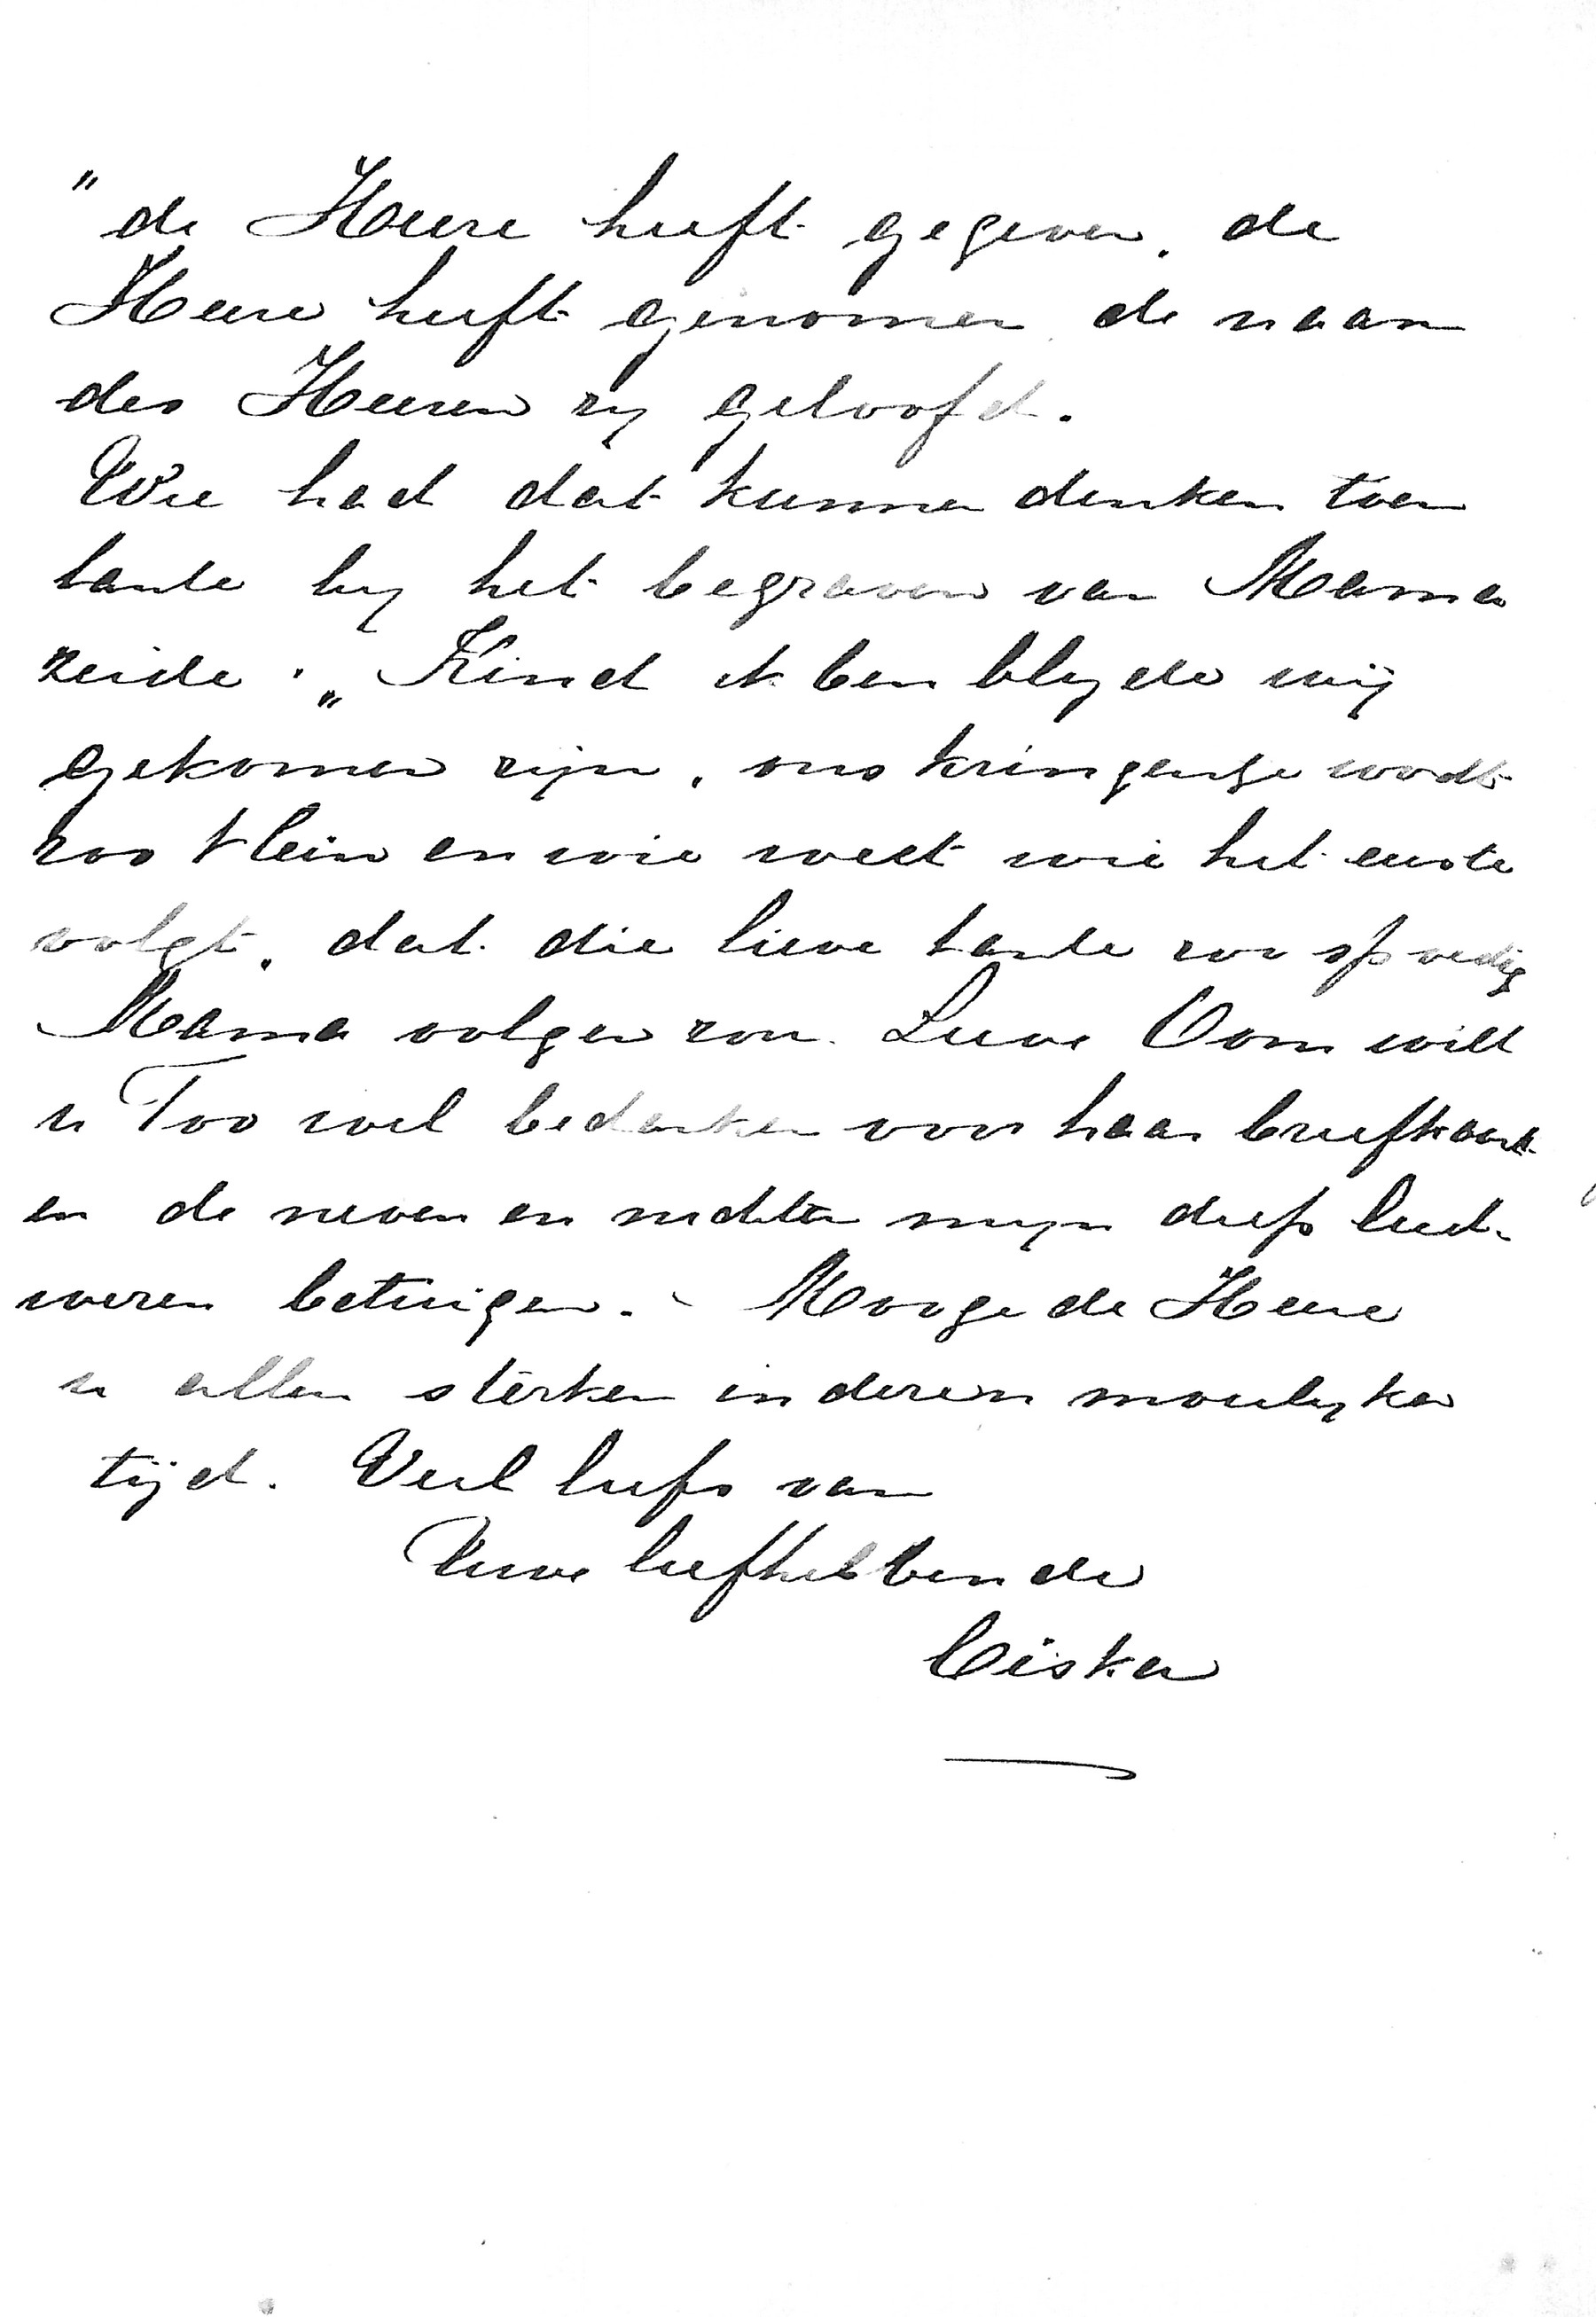 "de Heere heeft gegeven, de
Heere heeft genomen de naam
des Heeren zij geloofd.
Wie had dat kunnen denken toen
tante bij het begraven van Mama
zeide: „Kind ik ben blijde wij
gekomen zijn, ons kringentje wordt
zoo klein en wie weet wie het eerste
volgt, dat die lieve tante zoo spoedig
Mama volgen zou. Lieve Oom wilt
u Too wel bedanken voor haar briefkaart
en de neven en nichten mijn diep leed-
wezen betuigen. - Mooge de Heere
u allen sterken in dezen moeilijken
tijd. Veel liefs van
Uwe liefhebbende
Ciska